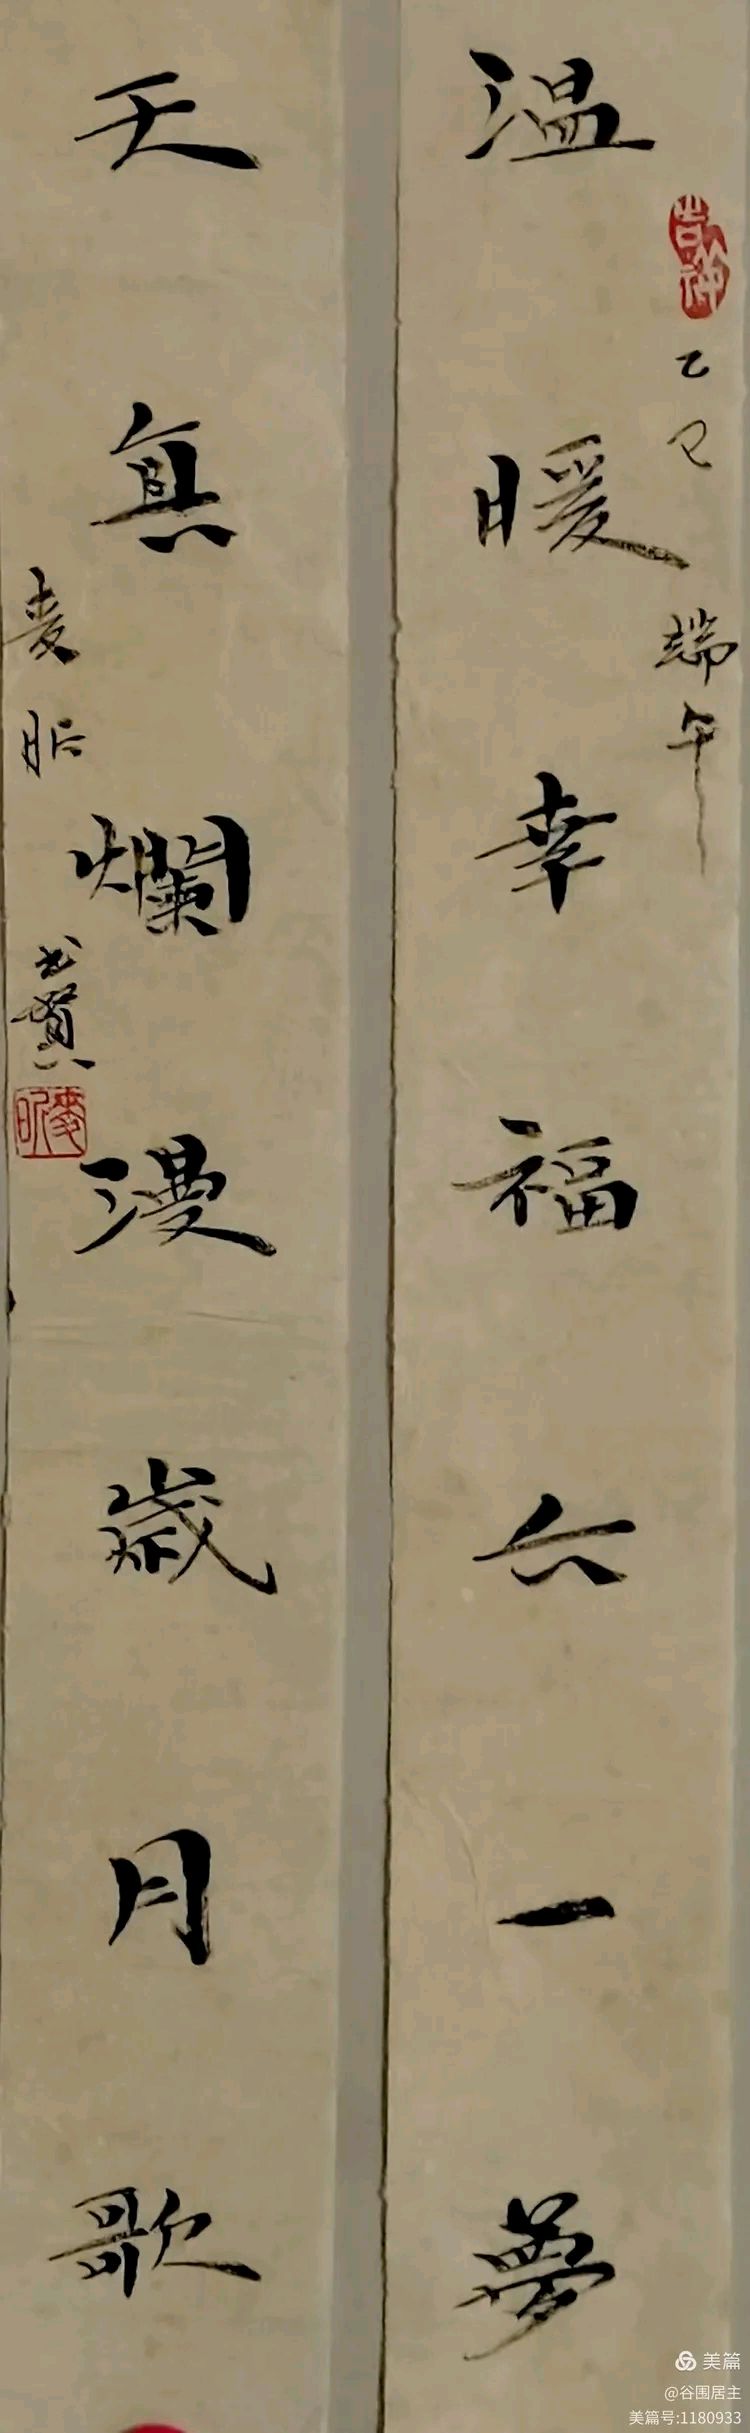 温暖幸福六一夢
乙巳端午
天真爛漫歲月歌
麦昕书贺
麥昕
美篇
@谷围居主
美篇号:1180933